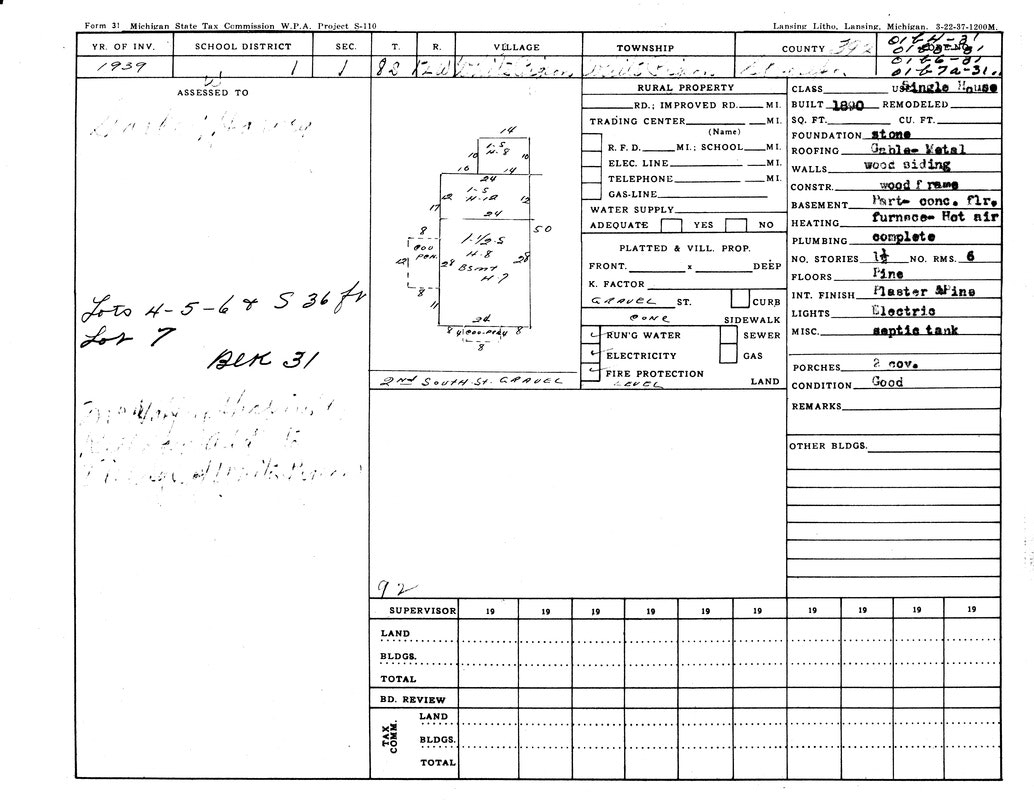 Form 31 Michigan State Tax Commission W.P.A. Project S-110
Lansing Litho, Lansing, Michigan. 3-22-37-1200M.
YR. OF INV. SCHOOL DISTRICT SEC. T. R. VILLAGE TOWNSHIP COUNTY 392
1939 1 1
ASSESSED TO
Lots 4-5-6 & S 36 ft
Lot 7
Blk 31
14
1-S
H-8
10 10
10 14
24
1-S
H-12
12 12
17
24
50
8
COV
POR.
12
8
11
1-1/2-S
H-8
Bsmt
H-7
28 28
24
8 8
8
2ND SOUTH ST. GRAVEL
RURAL PROPERTY
RD.; IMPROVED RD. MI.
TRADING CENTER MI.
(Name)
R. F. D. MI.; SCHOOL MI.
ELEC. LINE MI.
TELEPHONE MI.
GAS-LINE
WATER SUPPLY
ADEQUATE YES NO
PLATTED & VILL. PROP.
FRONT. x DEEP
K. FACTOR
GRAVEL ST. CURB
CONC SIDEWALK
RUN'G WATER SEWER
ELECTRICITY GAS
FIRE PROTECTION
LEVEL LAND
CLASS USE Single House
BUILT 1890 REMODELED
SQ. FT. CU. FT.
FOUNDATION stone
ROOFING Gable- Metal
WALLS wood siding
CONSTR. wood frame
BASEMENT Part- conc. flr.
HEATING furnace- Hot air
PLUMBING complete
NO. STORIES 1½ NO. RMS. 6
FLOORS Pine
INT. FINISH Plaster &Pine
LIGHTS Electric
MISC. septic tank
PORCHES 2 cov.
CONDITION Good
REMARKS
OTHER BLDGS.
92
SUPERVISOR 19 19 19 19 19 19 19 19 19 19
LAND
BLDGS.
TOTAL
BD. REVIEW
TAX COMM.
LAND
BLDGS.
TOTAL